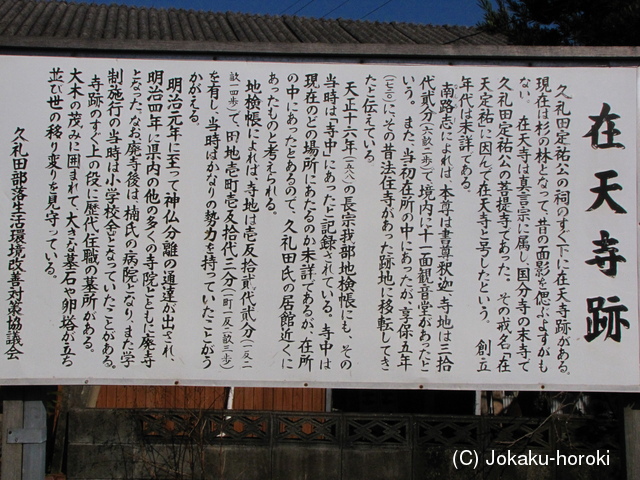 在天寺跡
久礼田定祐公の祠のすぐ下に在天寺跡がある。
現在は杉の林となって、昔の面影を偲ぶよすがも
ない。在天寺は真言宗に属し、国分寺の末寺で
久礼田定祐公の菩提寺であった。その戒名「在
天定祐」に因んで在天寺と号したという。創立
年代は未詳である。
「南路志」によれば、本尊は書尊釈迦、寺地は三拾
代貮分(六畝一歩)で、境内に十一面観音堂があったと
いう。また、当初在所の中にあったが、享保五年
(一七二〇)にその昔法住寺があった跡地に移転してき
たと伝えている。
天正十六年(一五八八)の長宗我部地検帳にも、その
当時は「寺中」にあったと記録されている。寺中は
現在のどの場所にあたるのか未詳であるが、在所
の中にあったとあるので、久礼田氏の居館近くに
あったものと考えられる。
地検帳によれば、寺地は壱反拾貮代貮分(一反二
畝一四歩)で、田地壱町壱反拾代三分(一町一反二畝三歩)
を有し、当時はかなりの勢力を持っていたことがう
かがえる。
明治元年に至って神仏分離の通達が出され、
明治四年に県内の他の多くの寺院とともに廃寺
となった。なお廃寺後は、楠氏の病院となり、また学
制施行の当時は小学校舎となっていたことがある。
寺跡のすぐ上の段に歴代住職の墓所がある。
大木の茂みに囲まれて、大きな墓石や卵塔が立ち
並び世の移り変りを見守っている。
久礼田部落生活環境改善対策協議会
(C) Jokaku-horoki